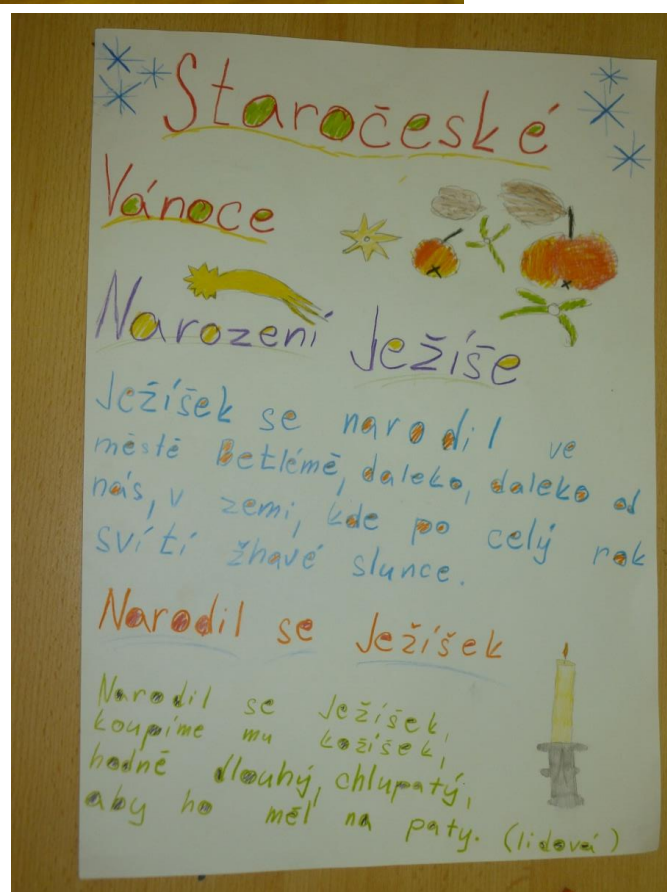 Staročeské
Vánoce
Narození Ježíše
Ježíšek se narodil ve
městě Betlémě, daleko, daleko od
nás, v zemi, kde po celý rok
svítí žhavé slunce.
Narodil se Ježíšek
Narodil se Ježíšek,
koupíme mu kožíšek,
hodně dlouhý, chlupatý,
aby ho měl na paty. (lidová)